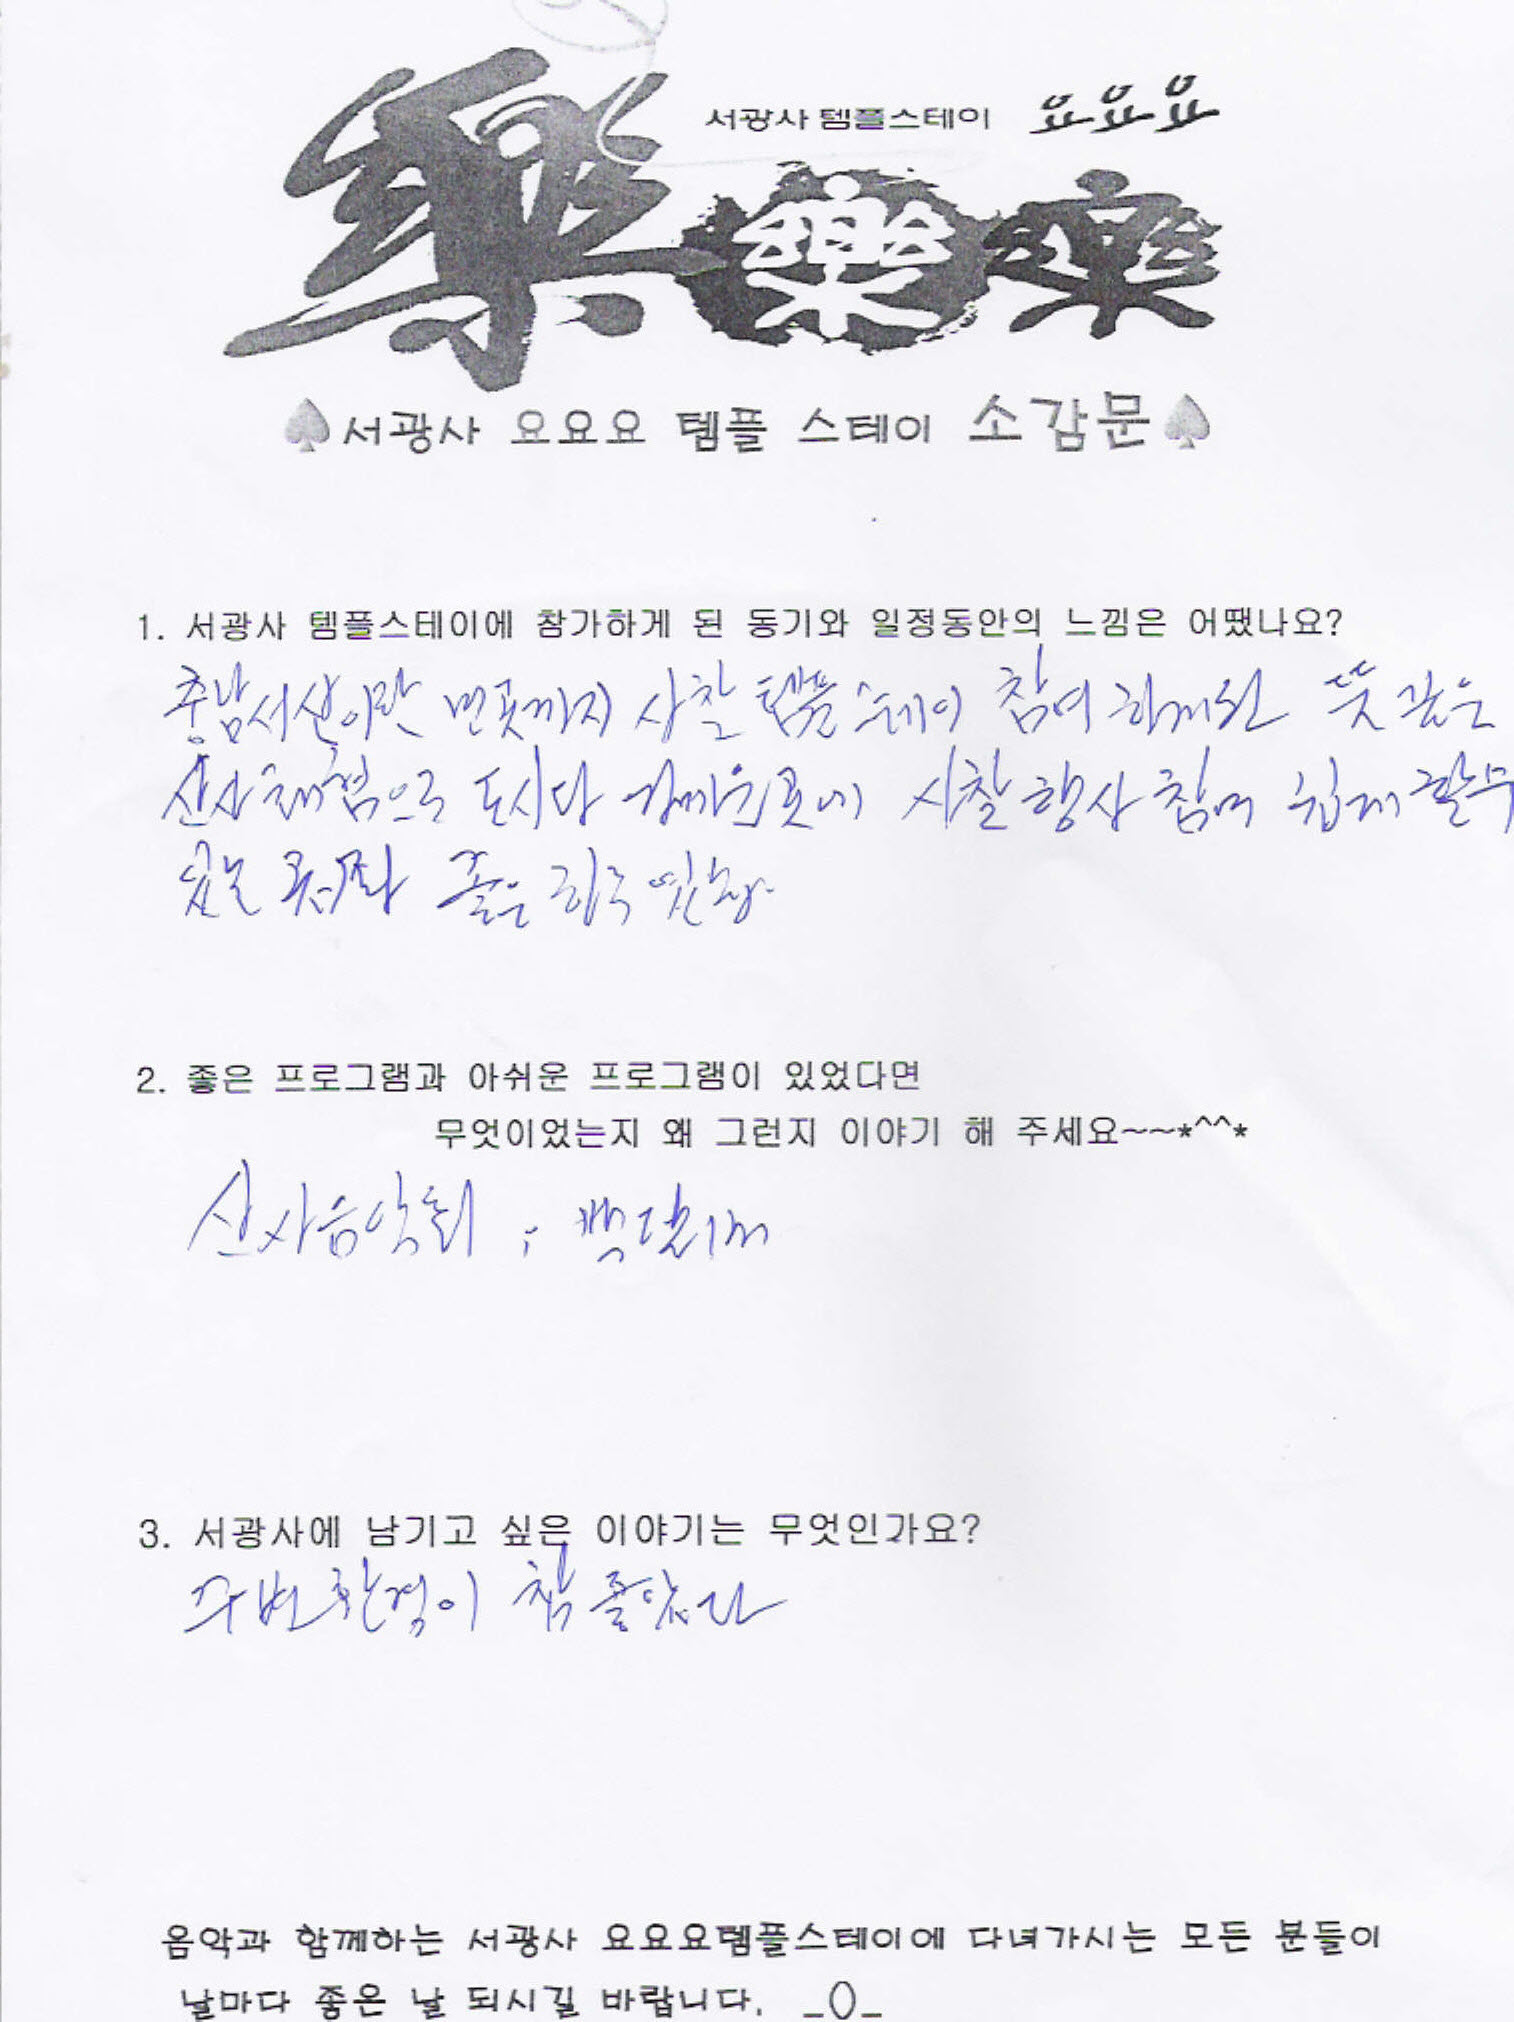 서광사 템플스테이 요요요
樂樂樂
♠서광사 요요요 템플 스테이 소감문♠
1. 서광사 템플스테이에 참가하게 된 동기와 일정동안의 느낌은 어땠나요?
충남서산이란 먼곳까지 사찰 템플스테이 참여 하게된 뜻 깊은
산사체험으로 도시다 가까운곳에 사찰행사 참여 쉽게 할수
있는 좋은
2. 좋은 프로그램과 아쉬운 프로그램이 있었다면
무엇이었는지 왜 그런지 이야기 해 주세요~~*^^*
산사음악회 ;
3. 서광사에 남기고 싶은 이야기는 무엇인가요?
주변환경이 참 좋았다
음악과 함께하는 서광사 요요요템플스테이에 다녀가시는 모든 분들이
날마다 좋은 날 되시길 바랍니다. _()_